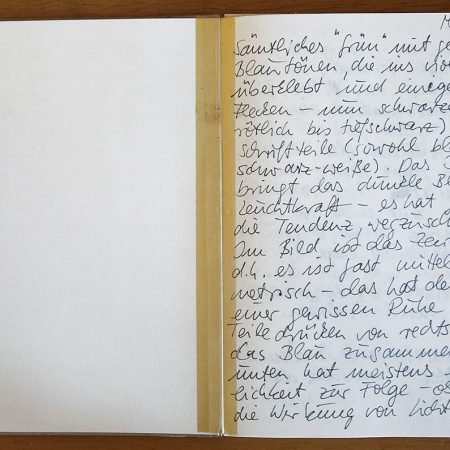 M
Sämtliches "grün" mit ge
Blautönen, die ins vio
überklebt und einege
Flecken – nun schwarze
rötlich bis tiefschwarz)
Schriftteile (sowohl bl
schwarz-weiße). Das S
bringt das dunkle Bl
Leuchtkraft – es hat
die Tendenz, wegzusch
Im Bild ist das Zen
d.h. es ist fast mittel
metrisch – das hat de
einer gewissen Ruhe
Teile drücken von rechts
das Blau zusammen
unten hat meistens
lichkeit zur Folge – od
die Wirkung von Licht